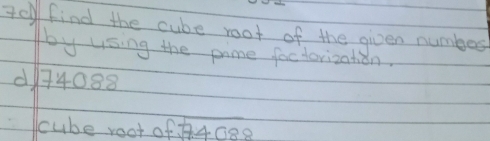 7c) find the cube root of the given numbers
by using the prime factorization.
d) 74088
cube root of 74088